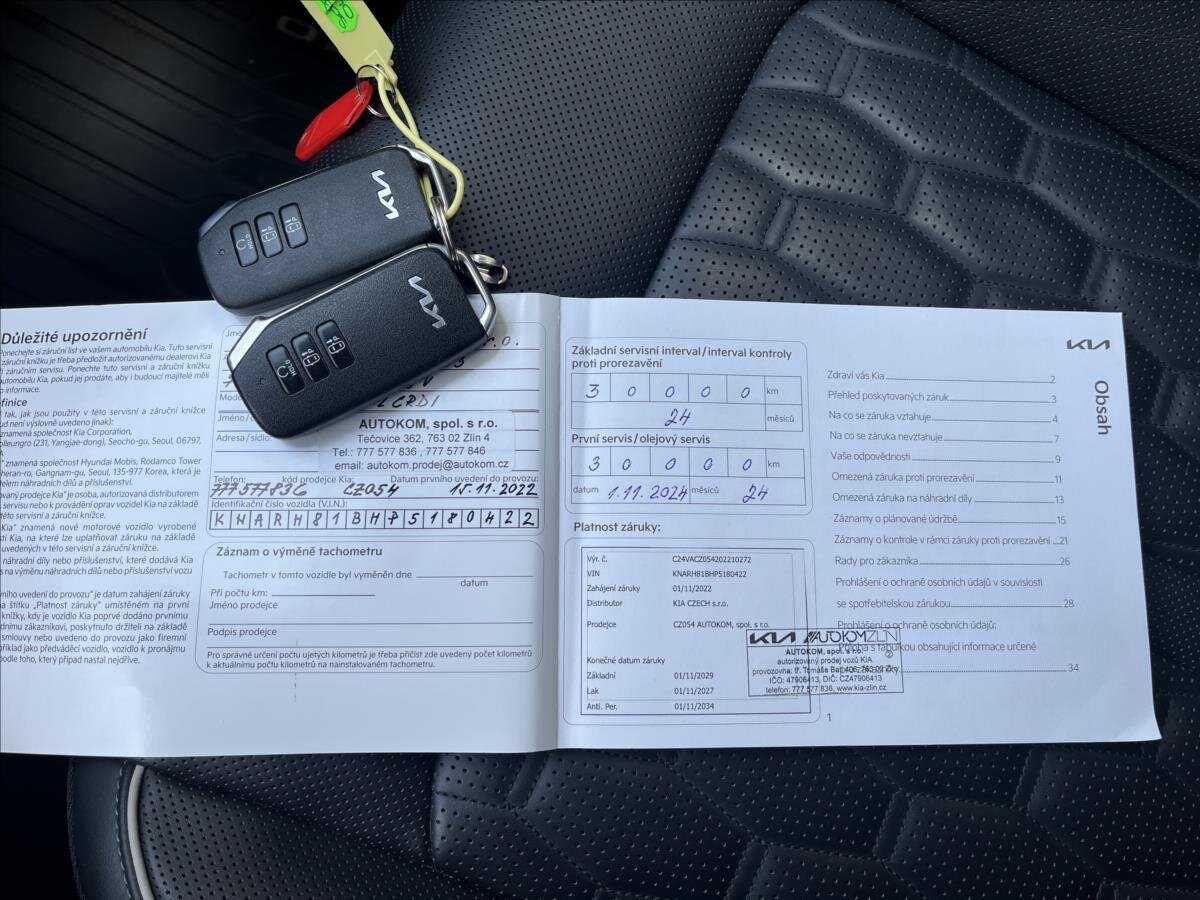 KIA
HOLD
KIA
HOLD
Důležité upozornění
Ponechejte si záruční list ve vašem automobilu Kia. Tuto servisní
záruční knížku je třeba předložit autorizovanému dealerovi Kia
záručním servisu. Ponechte tuto servisní a záruční knížku
automobilu Kia, pokud jej prodáte, aby i budoucí majitelé měli
informace.
finice
tak, jak jsou použity v této servisní a záruční knížce
ud není výslovně uvedeno jinak):
znamená společnost Kia Corporation,
olleungro (231, Yangjae-dong), Seocho-gu, Seoul, 06797,
znamená společnost Hyundai Mobis, Rodamco Tower
heran-ro, Gangnam-gu, Seoul, 135-977 Korea, která je
telem náhradních dílů a příslušenství.
ovaný prodejce Kia" je osoba, autorizovaná distributorem
servisu nebo k provádění oprav vozidel Kia na základě
této servisní a záruční knížce.
Kia" znamená nové motorové vozidlo vyrobené
tí Kia, na které lze uplatňovat záruku na základě
uvedených v této servisní a záruční knížce.
náhradní díly nebo příslušenství, které dodává Kia
s na výměnu náhradních dílů nebo příslušenství vozu
ního uvedení do provozu" je datum zahájení záruky
a štítku „Platnost záruky" umístěném na první
knížky, kdy je vozidlo Kia poprvé dodáno prvnímu
dnímu zákazníkovi, poskytnuto držiteli na základě
smlouvy nebo uvedeno do provozu jako firemní
příklad jako předváděcí vozidlo, vozidlo k pronájmu
podle toho, který případ nastal nejdříve.
Jmé
r.o.
Mode
CRDI
Jméno/
Adresa/sídlo:
AUTOKOM, spol. s r.o.
Tečovice 362, 763 02 Zlín 4
Tel.: 777 577 836, 777 577 846
email: autokom.prodej@autokom.cz
Telefon: kód prodejce Kia: Datum prvního uvedení do provozu:
777577836 CZ054 15.11.2022
Identifikační číslo vozidla (V.I.N.):
K N A R H 8 1 B H P 5 1 8 0 4 2 2
Záznam o výměně tachometru
Tachometr v tomto vozidle byl vyměněn dne
datum
Při počtu km:
Jméno prodejce
Podpis prodejce
Pro správné určení počtu ujetých kilometrů je třeba přičíst zde uvedený počet kilometrů
k aktuálnímu počtu kilometrů na nainstalovaném tachometru.
Základní servisní interval/interval kontroly
proti prorezavění
3 0 0 0 0 km
24 měsíců
První servis/olejový servis
3 0 0 0 0 km
datum 1.11.2024 měsíců 24
Platnost záruky:
Výr. č. C24VACZ054202210272
VIN KNARH81BHP5180422
Zahájení záruky 01/11/2022
Distributor KIA CZECH s.r.o.
Prodejce CZ054 AUTOKOM, spol. s r.o.
Konečné datum záruky
Základní 01/11/2029
Lak 01/11/2027
Anti. Per. 01/11/2034
KIA AUTOKOM ZLÍN
AUTOKOM, spol. s r.o.
autorizovaný prodej vozů KIA
provozovna: tř. Tomáše Bati
IČO: 47906413, DIČ: CZ47906413
telefon: 777 577 836, www.kia-zlin.cz
1
KIA
Obsah
Zdraví vás Kia 2
Přehled poskytovaných záruk 3
Na co se záruka vztahuje 4
Na co se záruka nevztahuje 7
Vaše odpovědnosti 9
Omezená záruka proti prorezavění 11
Omezená záruka na náhradní díly 13
Záznamy o plánované údržbě 15
Záznamy o kontrole v rámci záruky proti prorezavění 21
Rady pro zákazníka 26
Prohlášení o ochraně osobních údajů v souvislosti
se spotřebitelskou zárukou 28
Prohlášení o ochraně osobních údajů:
Příloha s tabulkou obsahující informace určené
34